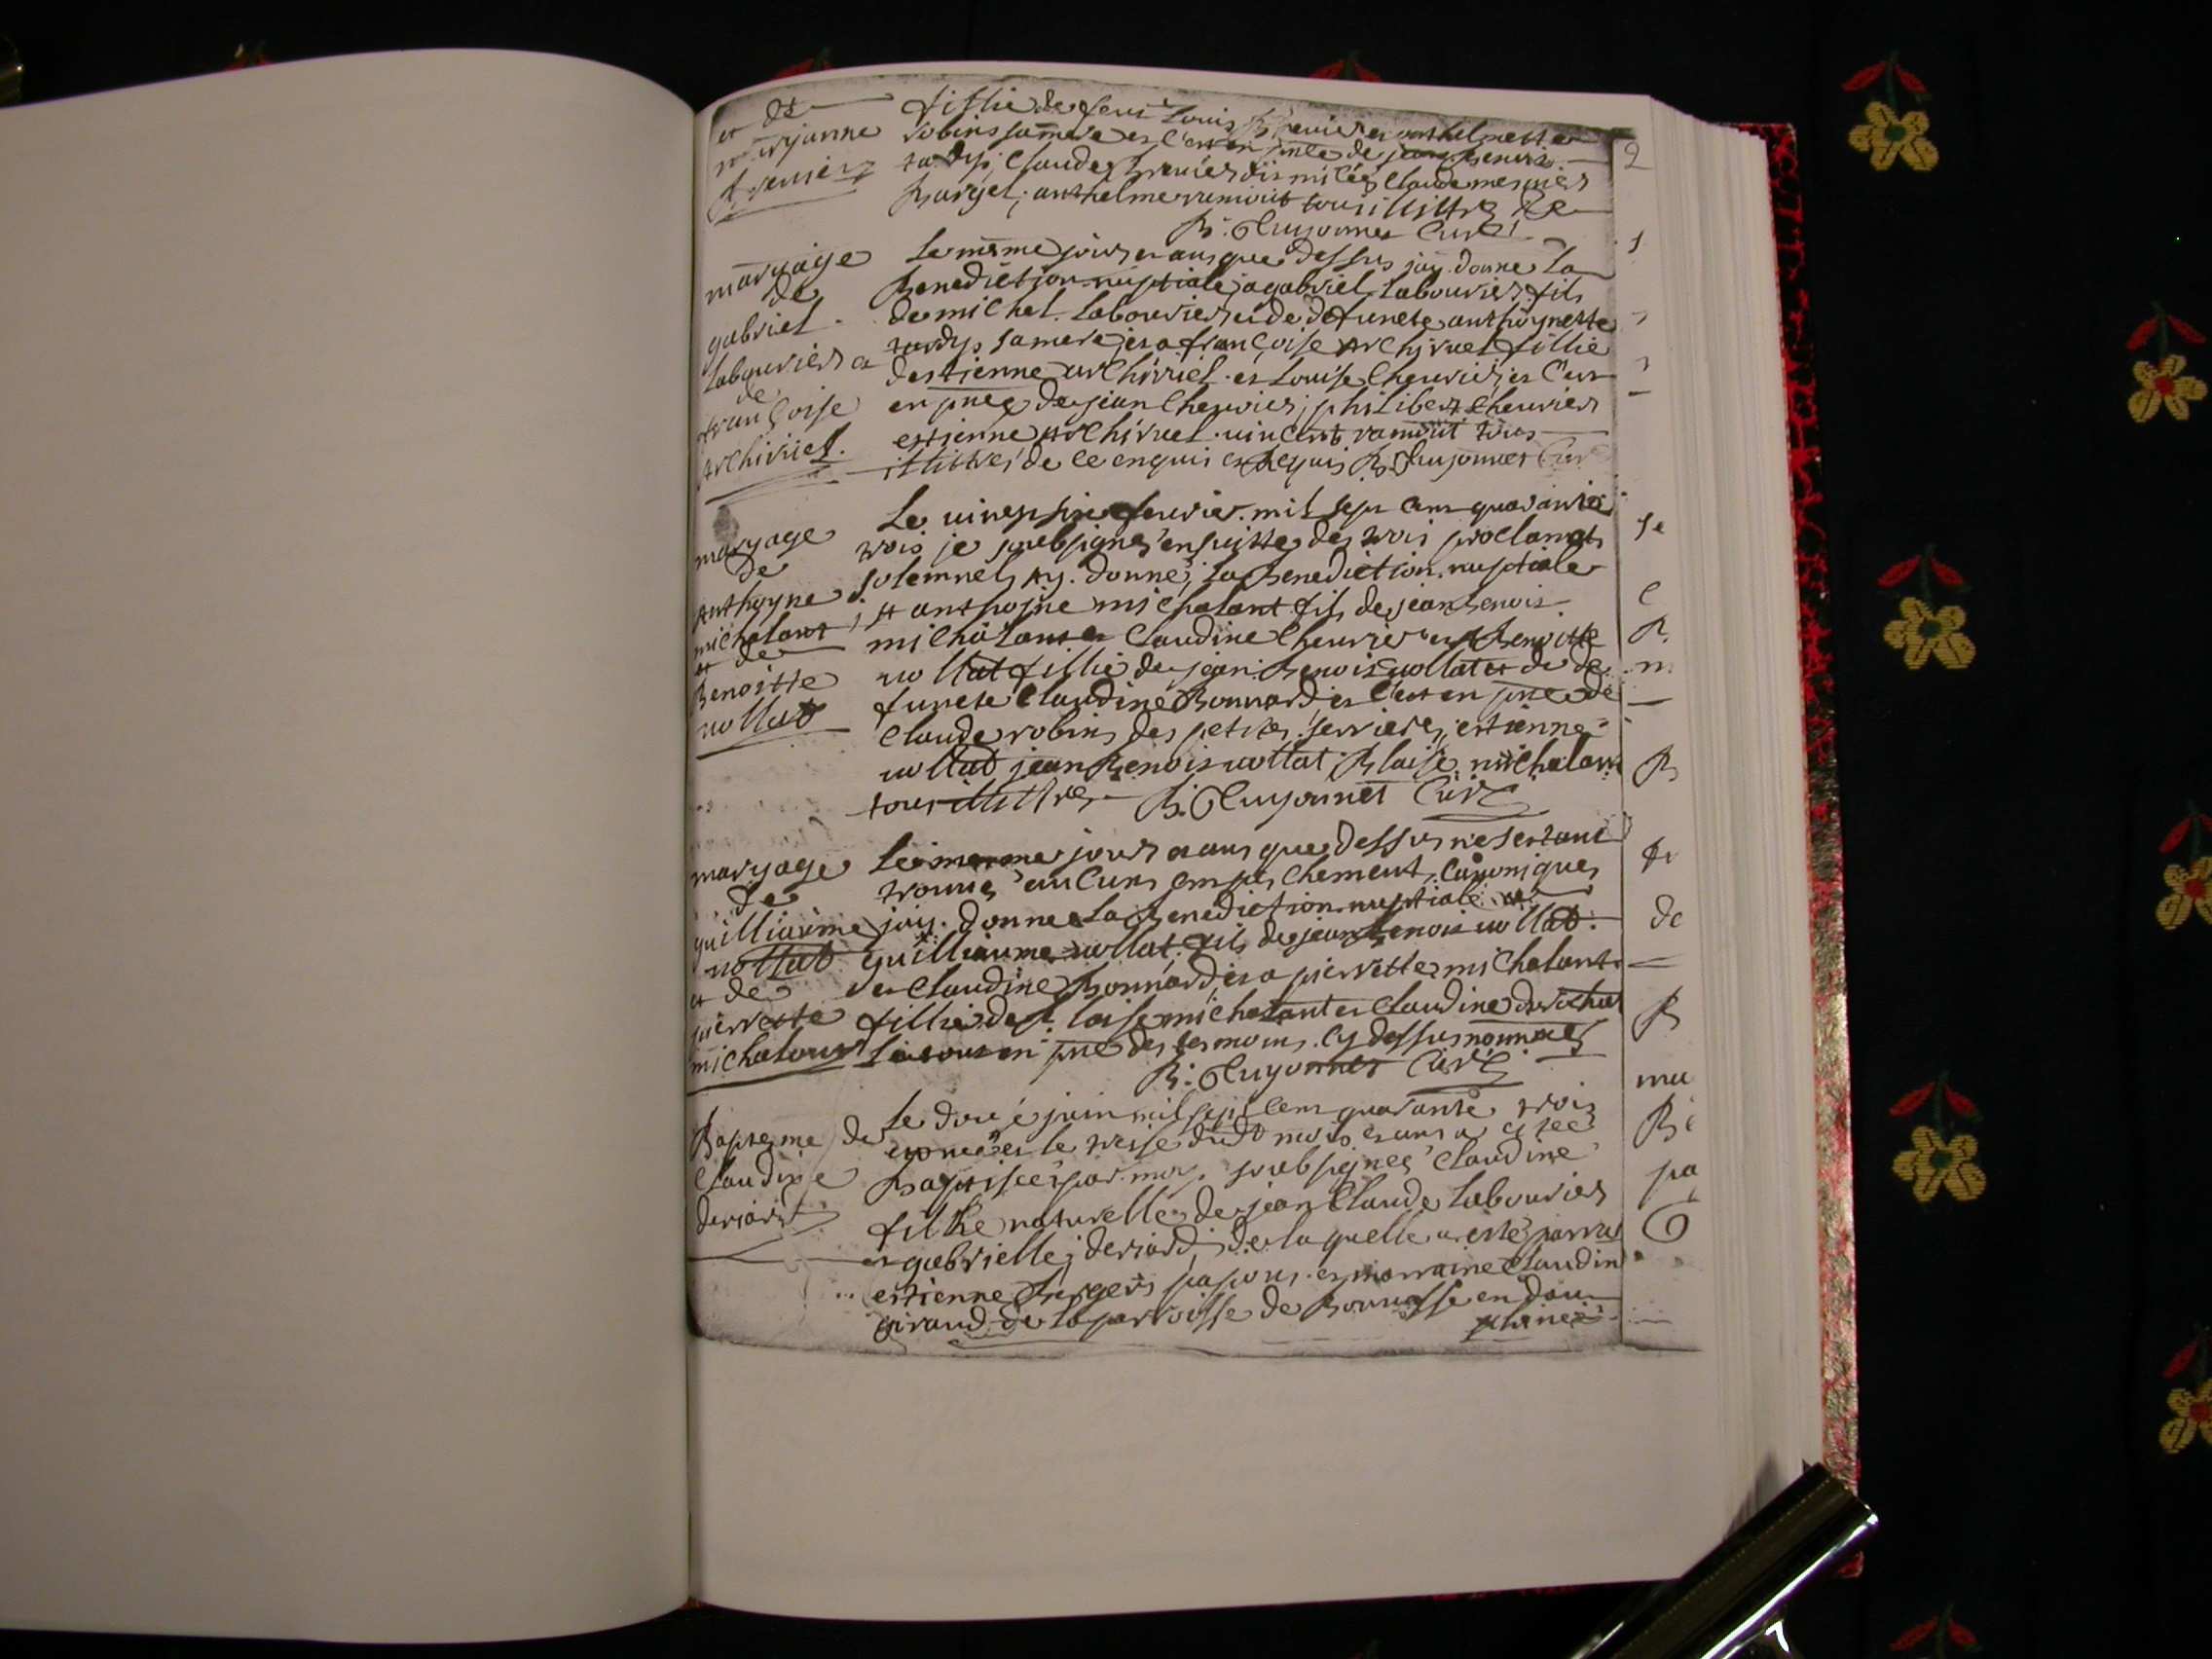 et de
maryanne
fillie de feu Louis
robins sa mere et
tardy; Claude Claude mesnier
Barget; anthelme tous illittres
B: Guyonnet Curé
maryage
de
gabriel
labourier et
de
françoise
Archiriel.
Le mesme jour et ans que dessus jay donne La
Benediction nuptiale, a gabriel Labourier fils
de michel Labourier et de defunete anthoynette
tardys sa mere, et a françoise Archiruel fillie
destienne archiriel et Louise Cheurier, et C'est
en pnce de jean Cheurier; philibert Cheurier
estienne Archiruel uincent ramout tous
illittres de ce enquis et requis B: Guyonnet Curé
maryage
de
Anthoyne
michalant
et de
Benoitte
uollat
Le uinept feurier mil sept cent quarante
trois je soubsignes ensuitte des trois proclamats
solemnels ay donné, La Benediction nuptiale
A anthojne michalant fils de jean benois
michalant et Claudine Cheurier et A Benoitte
uollat fillie de jean Benois uollat et de de
functe Claudine Bonnard, et C'est en pnce de
Claude robins des petites serrieres, estienne
uollat jean Benois uollat Blaise michalant
tous illittres B: Guyonnet Curé
maryage
de
guilliaume
uollat
et de
pierrette
michalant
Le mesme jour et ans que dessus ne sestant
trouués aucuns empechements Canoniques
jay donne La Benediction nuptiale a
guilliaume uollat fils de jean benois uollat
et Claudine Bonnard, et a pierrette michalant
fillie de blaise michalant et Claudine
Le tout en pnce des temoins cy dessus nommes
B: Guyonnet Curé
Bapteme de
Claudine
deriard
Le douze juin mil sept cent quarante trois
est née et le treise dudt mois et ans a estee
Baptisée par moy soubsignes Claudine
fillie naturelle de jean Claude Labourier
et gabrielle deriard, de laquelle a este parrain
estienne Berger et marraine Claudin
Giraud de la parroisse de en dau
phiné